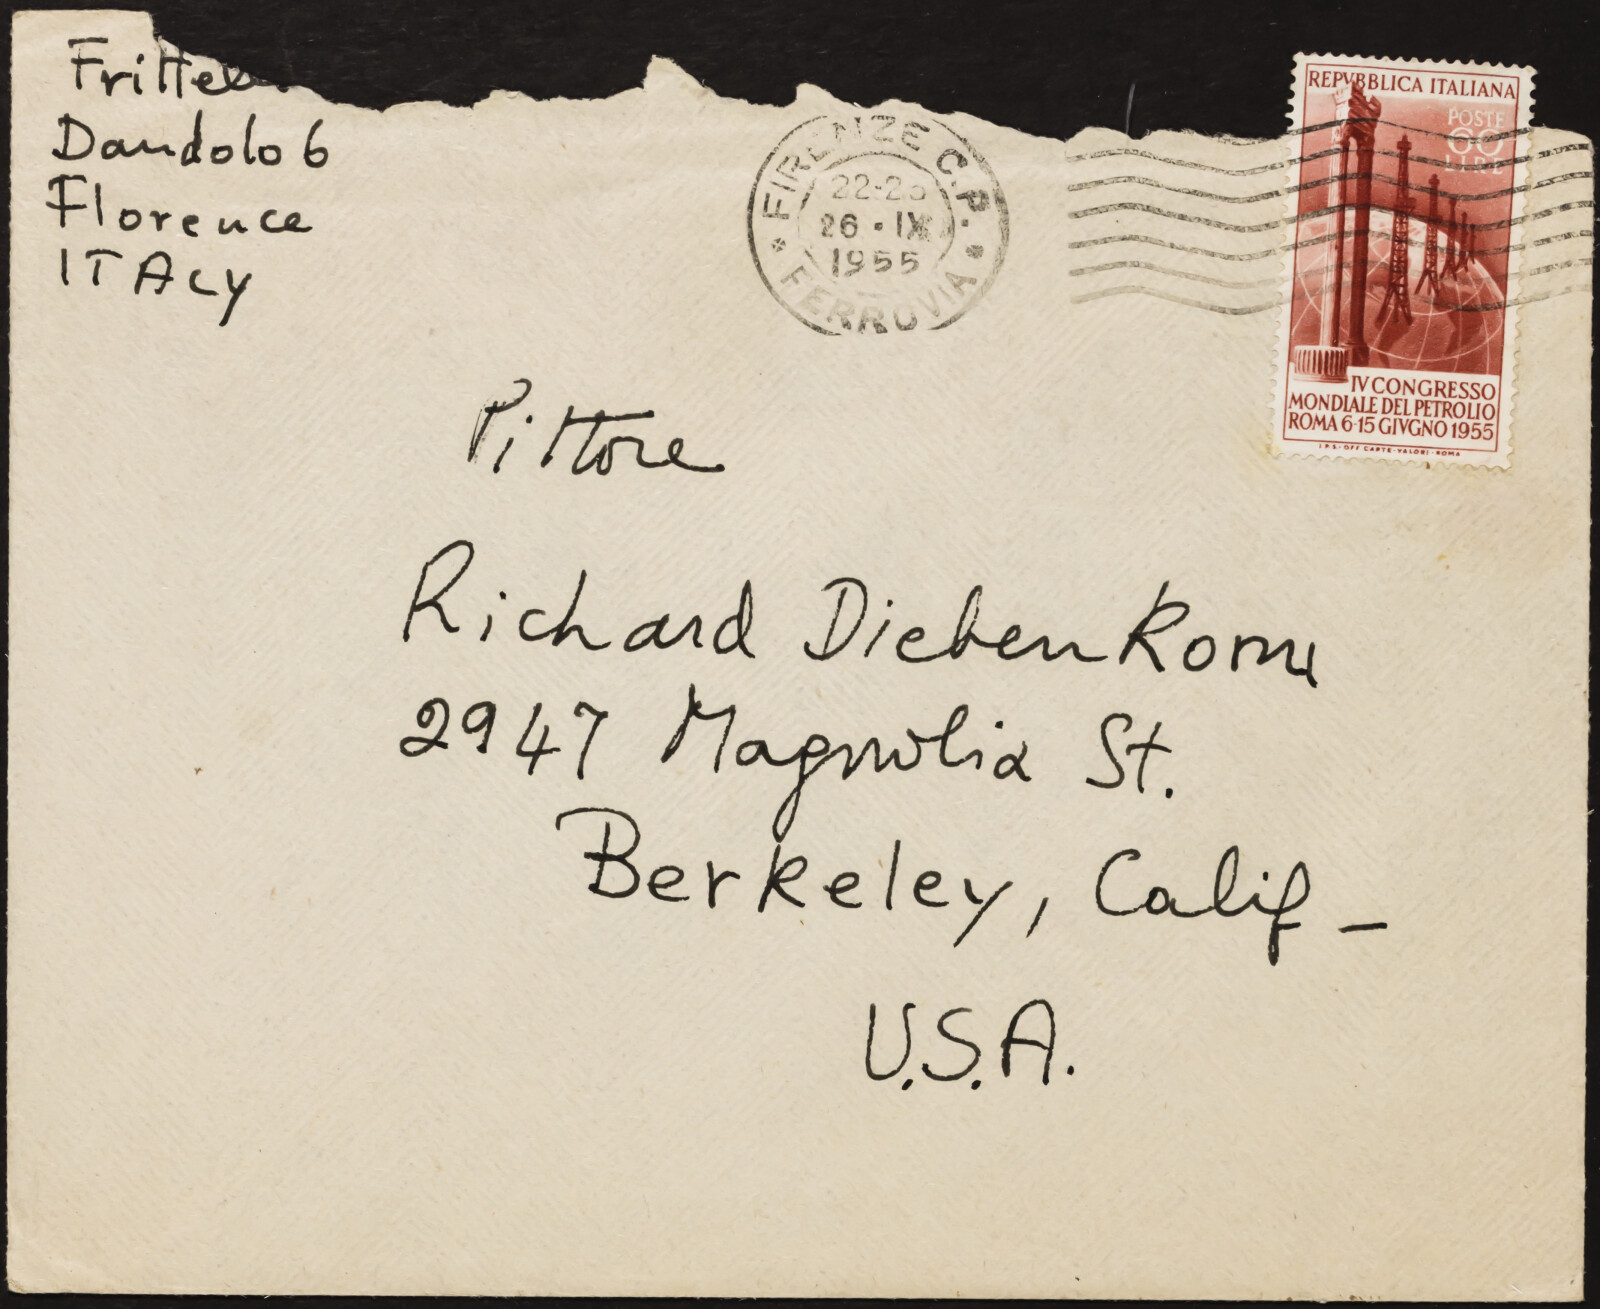 Frittel
Dandolo 6
Florence
ITALY
FIRENZE C.P.
26 · IX
1955
FERROVIA
REPVBBLICA ITALIANA
POSTE
60
LIRE
IV CONGRESSO
MONDIALE DEL PETROLIO
ROMA 6-15 GIVGNO 1955
I.P.S.-OFF CARTE-VALORI-ROMA
Pittore
Richard DiebenKorn
2947 Magnolia St.
Berkeley, Calif –
U.S.A.